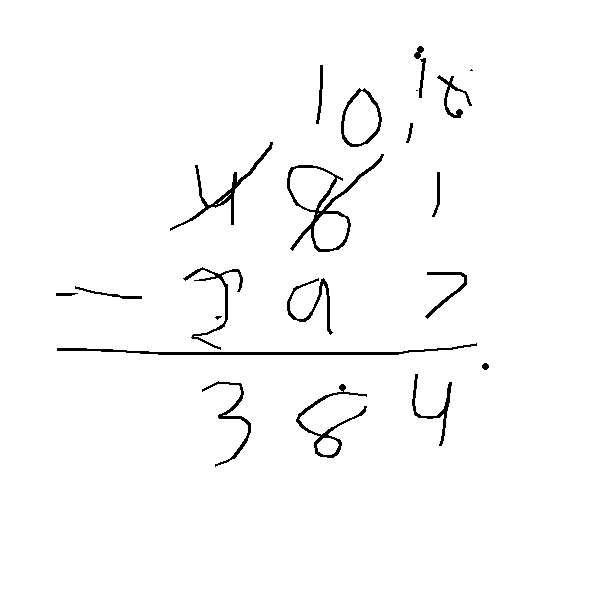 10 18
4 8 1
- 2 9 7
3 8 4